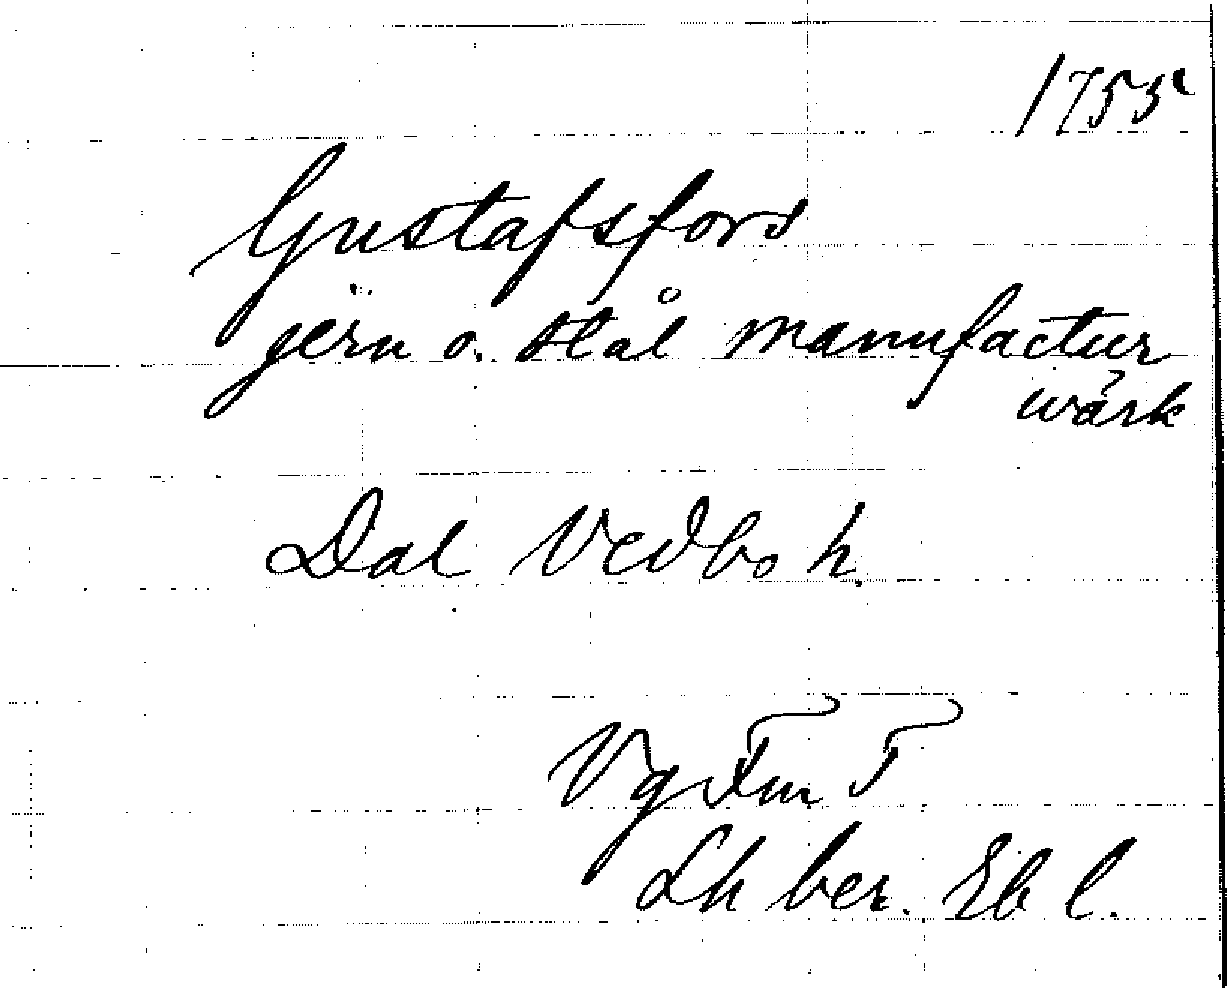 1755
Gustafsfors
jern o. stål manufactur
wärk
Dal Vedbo h.
Vg Fm F
Lh ber. Eb l.